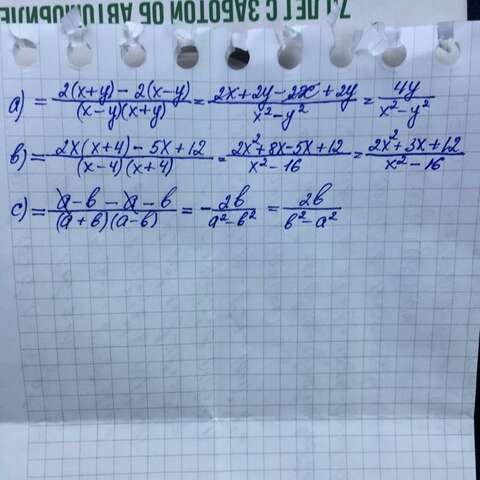 7 ЛЕТ С ЗАБОТОЙ ОБ АВТОМОБИЛЕ
a) = \frac{2(x+y) - 2(x-y)}{(x-y)(x+y)} = \frac{2x + 2y - 2x + 2y}{x^2 - y^2} = \frac{4y}{x^2 - y^2}
b) = \frac{2x(x+4) - 5x + 12}{(x-4)(x+4)} = \frac{2x^2 + 8x - 5x + 12}{x^2 - 16} = \frac{2x^2 + 3x + 12}{x^2 - 16}
c) = \frac{a - b - a - b}{(a+b)(a-b)} = -\frac{2b}{a^2 - b^2} = \frac{2b}{b^2 - a^2}